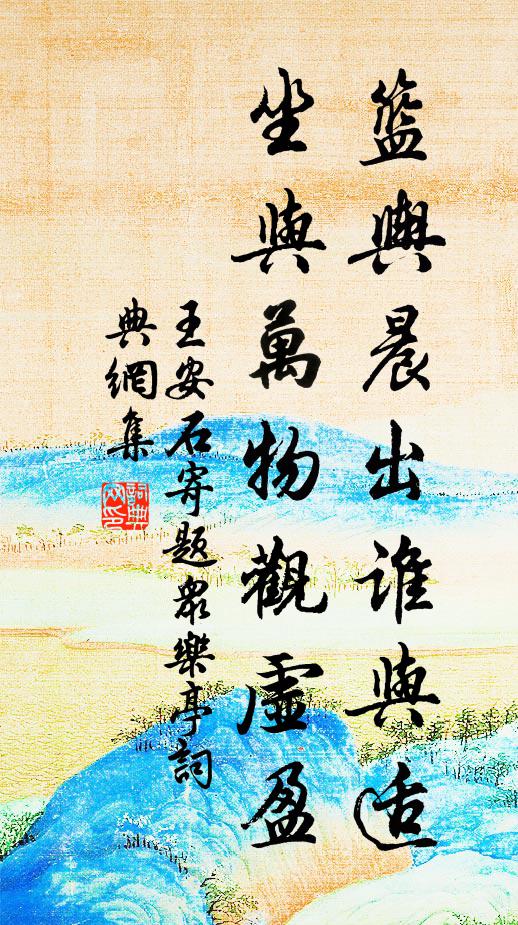 籃輿晨出誰與适
坐與萬物觀虛盈
王安石寄題眾樂亭詞
典網集
詞典